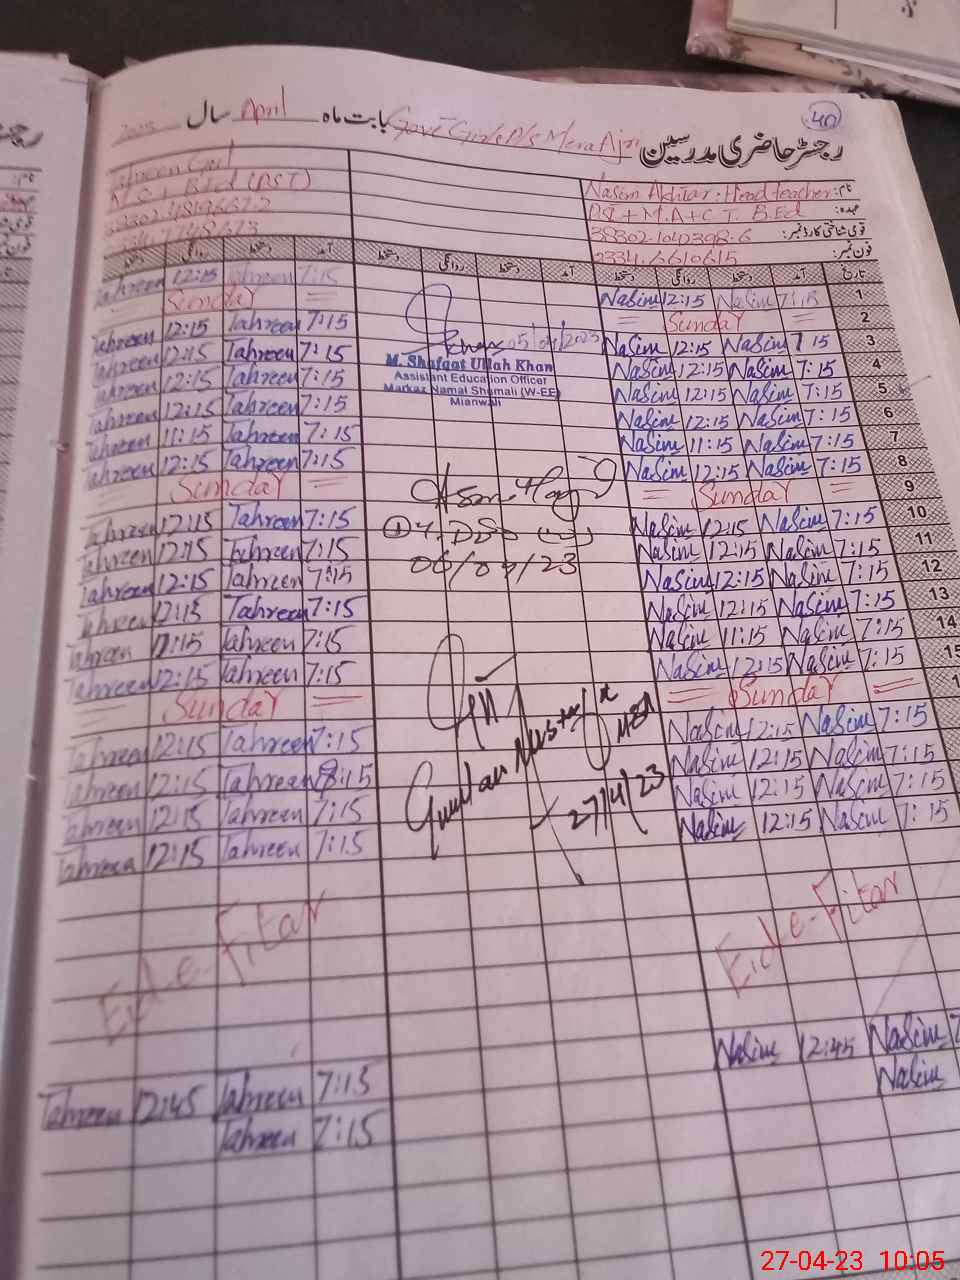 40
رجسٹر حاضری مدرسین Govt Girls P/s Mera بابت ماہ April سال
نام: Nasim Akhtar. Head teacher
عہدہ: PST + M.A + C.T. B.Ed
قومی شناختی کارڈ نمبر:
فون نمبر: 0334.6610615
B.Ed (PST)
تاریخ آمد دستخط روانگی دستخط آمد دستخط روانگی دستخط آمد دستخط روانگی دستخط
1 7:15 Nasim 12:15 Nasim 7:15 Tahreen 12:15 Tahreen
2 Sunday Sunday
3 7 15 Nasim 12:15 Nasim 7:15 Tahreen 12:15 Tahreen
4 7:15 Nasim 12:15 Nasim 7:15 Tahreen 12:15 Tahreen
5 7:15 Nasim 12:15 Nasim 7:15 Tahreen 12:15 Tahreen
6 7:15 Nasim 12:15 Nasim 7:15 Tahreen 12:15 Tahreen
7 7:15 Nasim 11:15 Nasim 7:15 Tahreen 11:15 Tahreen
8 7:15 Nasim 12:15 Nasim 7:15 Tahreen 12:15 Tahreen
9 Sunday Sunday
10 7:15 Nasim 12:15 Nasim 7:15 Tahreen 12:15 Tahreen
11 7:15 Nasim 12:15 Nasim 7:15 Tahreen 12:15 Tahreen
12 7:15 Nasim 12:15 Nasim 7:15 Tahreen 12:15 Tahreen
13 7:15 Nasim 12:15 Nasim 7:15 Tahreen 12:15 Tahreen
14 7:15 Nasim 11:15 Nasim 7:15 Tahreen Tahreen
15 7:15 Nasim 12:15 Nasim 7:15 Tahreen 12:15 Tahreen
Sunday Sunday
7:15 Nasim 12:15 Nasim 7:15 Tahreen 12:15 Tahreen
7:15 Nasim 12:15 Nasim 8:15 Tahreen 12:15 Tahreen
7:15 Nasim 12:15 Nasim 7:15 Tahreen 12:15 Tahreen
7:15 Nasim 12:15 Nasim 7:15 Tahreen 12:15 Tahreen
Eid-e-Fitar Eid-e-Fitar
Nasim 12:45 Nasim 7:15 Tahreen 12:45 Tahreen
Nasim 7:15 Tahreen
05/04/2023
M. Shafaat Ullah Khan
Assistant Education Officer
Markaz Namal Shumali (W-EE)
Mianwali
27/4/23
27-04-23 10:05